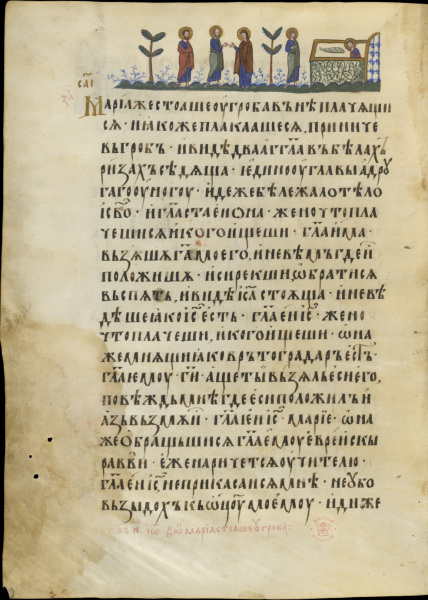 Маріꙗ же стоꙗше оу гроба вънѣ плачѫщи
сѧ · ꙗкоже плакаашесѧ, приниче
въ гробъ · и видѣ два аг҃гла въ бѣлахъ
ризахъ сѣдѧща · единого оу главы а дроу
гаго оу ногоу · идеже бѣ лежало тѣло
іс҃во · и гл҃аста еи она · жено что пла
чешисѧ и кого ищеши · гл҃а има
възѧшѧ га҃ моего, и не вѣмъ где и
положишѧ · и си рекши ѡбратисѧ
въспѧть, и видѣ іс҃а стоѧща · и не вѣ
дѣше ꙗко іс҃ есть · гл҃а еи іс҃ · жено
что плачеши, и кого ищеши · ѡна
же мнѧщи ꙗко врътоградаръ есть
гл҃а емоу · ги҃ · аще ты възѧлъ еси его,
повѣждь мнѣ где еси положилъ и
азъ възмѫ и · гл҃а еи іс҃ · маріе · ѡна
же ѡбращьшисѧ гл҃а емоу еврейскы
раввѵ · еже наричетсѧ оучителю ·
гл҃а еи іс҃, не прикасаисѧ мнѣ · не оу бо
възыдохъ къ ѡц҃оу моемоу · иди же